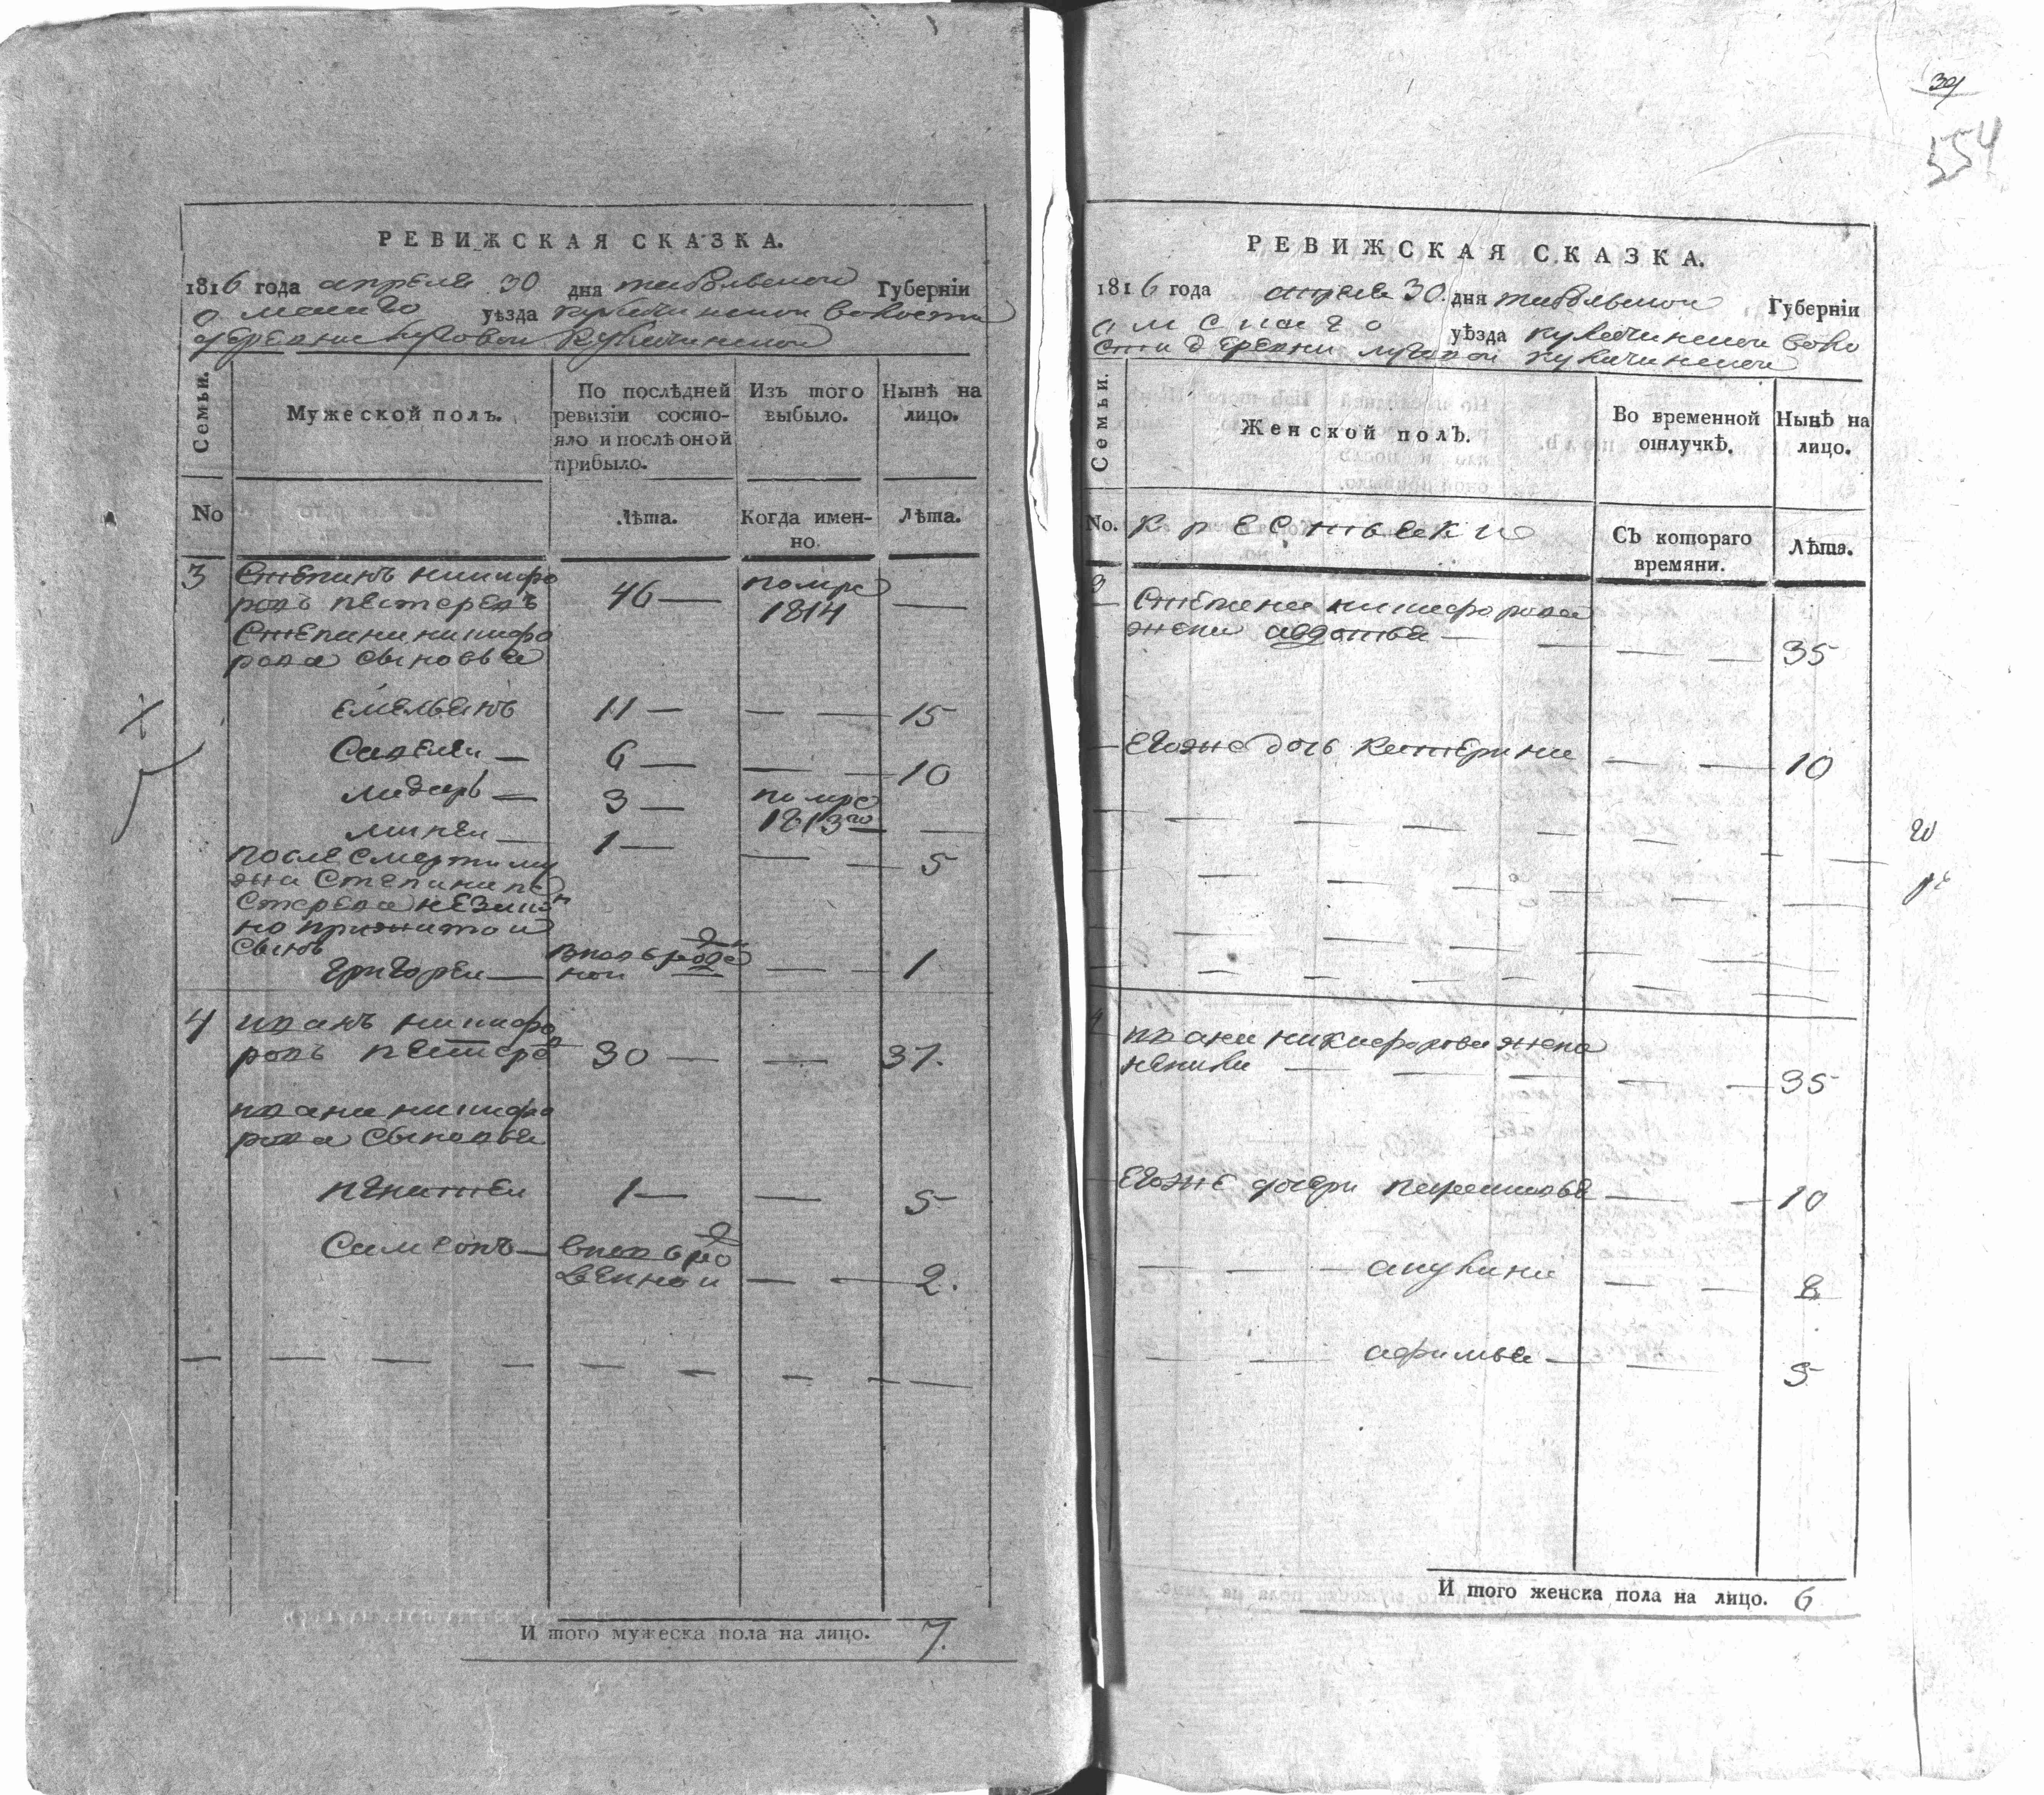 РЕВИЖСКАЯ СКАЗКА.
1816 года апреля 30 дня тобольской Губерніи
омскаго уѣзда кулачинской волости
деревни луговой кулачинской
Семьи.
Мужеской полъ.
По послѣдней ревизіи состо-
яло и послѣ оной
прибыло.
Изъ того
выбыло.
Нынѣ на
лицо.
No
Лѣта.
Когда имен-
но.
Лѣта.
3 Степанъ никифо
ровъ пестеревъ 46 — помре 1814 —
Степана никифо
рова сыновья
емельянъ 11 — — — 15
Савелеи — 6 — — — 10
— 3 — помре 1813го —
— 1 — — — 5
после смерти му
жа Степана пе
стерева незакон
но прижитои
сынъ
григореи — вновь рожде
нои — — — 1
4 иванъ никифо
ровъ пестерев 30 — — 37.
ивана никифо
рова сыновья
игнатеи 1 — — 5
Самсонъ — вновь рож
деннои — — 2.
И того мужеска пола на лицо. 7.
39
554
РЕВИЖСКАЯ СКАЗКА.
1816 года апреля 30. дня тобольской Губерніи
омскаго уѣзда кулачинской воло
сти деревни луговой кулачинской
Семьи.
Женской полъ.
Во временной
отлучкѣ.
Нынѣ на
лицо.
No.
крестьянки
Съ котораго
времяни.
Лѣта.
3
Степана никифорова
жена авдотья — — — — 35
— егоже дочь катерина — — — 10
4
ивана никифорова жена
— — — — — 35
егоже дочери парасковья — — 10
— — — акулина — — 8
— — афимья — — 5
И того женска пола на лицо. 6